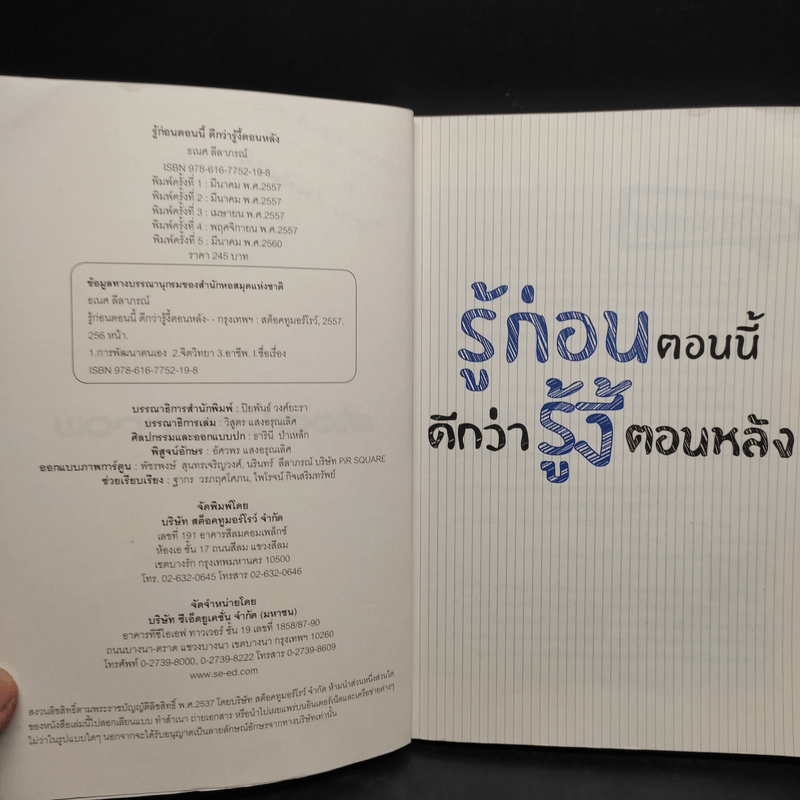 รู้ก่อนตอนนี้ ดีกว่ารู้งี้ตอนหลัง
ธเนศ ลีลาภรณ์
ISBN 978-616-7752-19-8
พิมพ์ครั้งที่ 1 : มีนาคม พ.ศ.2557
พิมพ์ครั้งที่ 2 : มีนาคม พ.ศ.2557
พิมพ์ครั้งที่ 3 : เมษายน พ.ศ.2557
พิมพ์ครั้งที่ 4 : พฤศจิกายน พ.ศ.2557
พิมพ์ครั้งที่ 5 : มีนาคม พ.ศ.2560
ราคา 245 บาท
ข้อมูลทางบรรณานุกรมของสำนักหอสมุดแห่งชาติ
ธเนศ ลีลาภรณ์
รู้ก่อนตอนนี้ ดีกว่ารู้งี้ตอนหลัง- - กรุงเทพฯ : สต็อคทูมอร์โรว์, 2557.
256 หน้า.
1.การพัฒนาตนเอง 2.จิตวิทยา 3.อาชีพ. I.ชื่อเรื่อง
ISBN 978-616-7752-19-8
บรรณาธิการสำนักพิมพ์ : ปิยพันธ์ วงศ์ยะรา
บรรณาธิการเล่ม : วิสูตร แสงอรุณเลิศ
ศิลปกรรมและออกแบบปก : ธารินี ป่าเหล็ก
พิสูจน์อักษร : อัศวพร แสงอรุณเลิศ
ออกแบบภาพการ์ตูน : พัชรพงษ์ สุนทรเจริญวงศ์, นรินทร์ ลีลาภรณ์ บริษัท PiR SQUARE
ช่วยเรียบเรียง : ฐากร วรภฤศโศภน, ไพโรจน์ กิจเสริมทรัพย์
จัดพิมพ์โดย
บริษัท สต็อคทูมอร์โรว์ จำกัด
เลขที่ 191 อาคารสีลมคอมเพล็กซ์
ห้องเอ ชั้น 17 ถนนสีลม แขวงสีลม
เขตบางรัก กรุงเทพมหานคร 10500
โทร. 02-632-0645 โทรสาร 02-632-0646
จัดจำหน่ายโดย
บริษัท ซีเอ็ดยูเคชั่น จำกัด (มหาชน)
อาคารทีซีไอเอฟ ทาวเวอร์ ชั้น 19 เลขที่ 1858/87-90
ถนนบางนา-ตราด แขวงบางนา เขตบางนา กรุงเทพฯ 10260
โทรศัพท์ 0-2739-8000, 0-2739-8222 โทรสาร 0-2739-8609
www.se-ed.com
สงวนลิขสิทธิ์ตามพระราชบัญญัติลิขสิทธิ์ พ.ศ.2537 โดยบริษัท สต็อคทูมอร์โรว์ จำกัด ห้ามนำส่วนหนึ่งส่วนใด
ของหนังสือเล่มนี้ไปลอกเลียนแบบ ทำสำเนา ถ่ายเอกสาร หรือนำไปเผยแพร่บนอินเตอร์เน็ตและเครือข่ายต่างๆ
ไม่ว่าในรูปแบบใดๆ นอกจากจะได้รับอนุญาตเป็นลายลักษณ์อักษรจากทางบริษัทเท่านั้น
รู้ก่อนตอนนี้
ดีกว่ารู้งี้ตอนหลัง